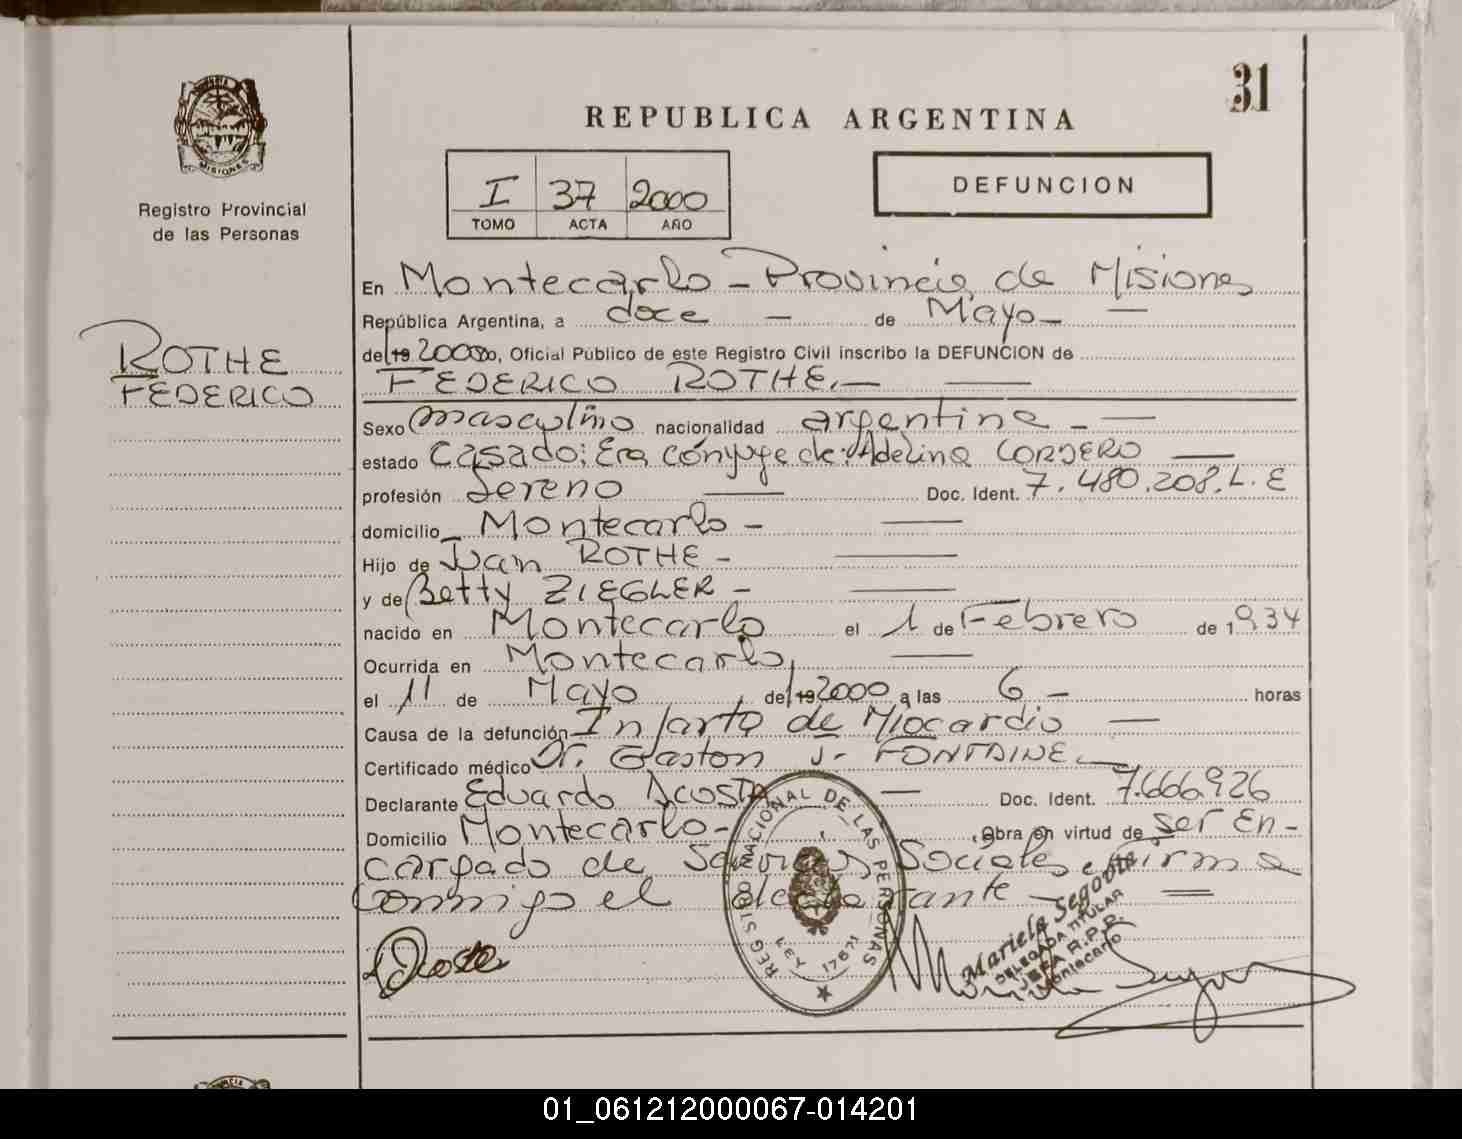 31
REPUBLICA ARGENTINA
PROVINCIA
MISIONES
Registro Provincial
de las Personas
I 37 2000
TOMO ACTA AÑO
DEFUNCION
ROTHE
FEDERICO
En Montecarlo - Provincia de Misiones
República Argentina, a doce - de Mayo - —
de 19 2000, Oficial Público de este Registro Civil inscribo la DEFUNCION de
FEDERICO ROTHE. — —
Sexo masculino nacionalidad argentina - —
estado Casado; Era cónyuge de: Adelina CORDERO —
profesión Sereno — Doc. Ident. 7.480.208. L. E
domicilio - Montecarlo - —
Hijo de Juan ROTHE - —
y de Betty ZIEGLER - —
nacido en Montecarlo el 1 de Febrero de 1934
Ocurrida en Montecarlo, —
el 11 de Mayo de 19 2000 a las 6 - horas
Causa de la defunción Infarto de Miocardio —
Certificado médico Dr. Gaston J. FONTAINE —
Declarante Eduardo ACOSTA — Doc. Ident. 7.666.926
Domicilio Montecarlo - . Obra en virtud de ser En-
cargado de Servicios Sociales firma
conmigo el declarante — =
REGISTRO NACIONAL DE LAS PERSONAS
LEY 17671
Acosta
Mariela Segovia
DELEGADA TITULAR
JEFA R.P.P.
Montecarlo
01_061212000067-014201